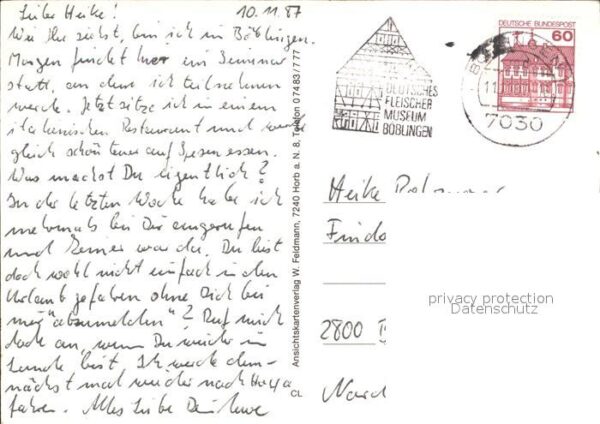 Liebe Heike! 10.11.87
Wie Du siehst, bin ich in Böblingen.
Morgen findet hier ein Seminar
statt, an dem ich teilnehmen
werde. Jetzt sitze ich in einem
italienischen Restaurant und werde
gleich schön teuer auf Spesen essen.
Was machst Du eigentlich?
In der letzten Woche habe ich
mehrmals bei Dir angerufen
und keiner war da. Du bist
doch wohl nicht einfach in den
Urlaub gefahren ohne Dich bei
mir "abzumelden"? Ruf mich
doch an, wenn Du wieder im
Lande bist. Ich werde dem-
nächst mal wieder nach
fahren. Alles Liebe Dein Uwe
Ansichtskartenverlag W. Feldmann, 7240 Horb a. N. 8, Telefon 07483/777
CL
DEUTSCHES
FLEISCHER
MUSEUM
BÖBLINGEN
DEUTSCHE BUNDESPOST
60
7030
Heike
Findo
2800 B
Nord
privacy protection
Datenschutz